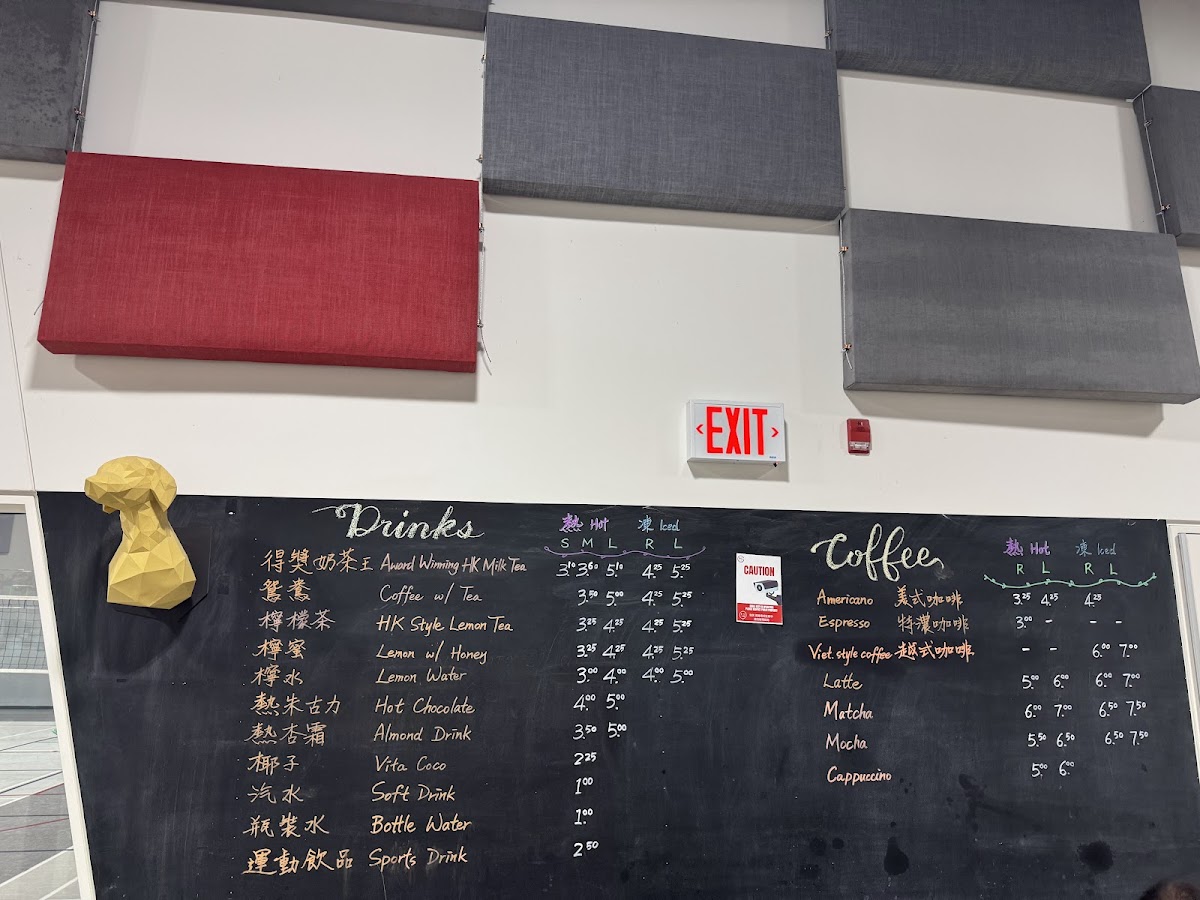 EXIT
Drinks
熱 Hot 凍 Iced
S M L R L
得獎奶茶王 Award Winning HK Milk Tea 3.10 3.60 5.10 4.25 5.25
鴛鴦 Coffee w/ Tea 3.50 5.00 4.25 5.25
檸檬茶 HK Style Lemon Tea 3.25 4.25 4.25 5.25
檸蜜 Lemon w/ Honey 3.25 4.25 4.25 5.25
檸水 Lemon Water 3.00 4.00 4.00 5.00
熱朱古力 Hot Chocolate 4.00 5.00
熱杏霜 Almond Drink 3.50 5.00
椰子 Vita Coco 2.25
汽水 Soft Drink 1.00
瓶裝水 Bottle Water 1.00
運動飲品 Sports Drink 2.50
CAUTION
Coffee
熱 Hot 凍 Iced
R L R L
Americano 美式咖啡 3.25 4.25 4.25
Espresso 特濃咖啡 3.00 - - -
Viet. style coffee 越式咖啡 - - 6.00 7.00
Latte 5.00 6.00 6.00 7.00
Matcha 6.00 7.00 6.50 7.50
Mocha 5.50 6.50 6.50 7.50
Cappuccino 5.00 6.00